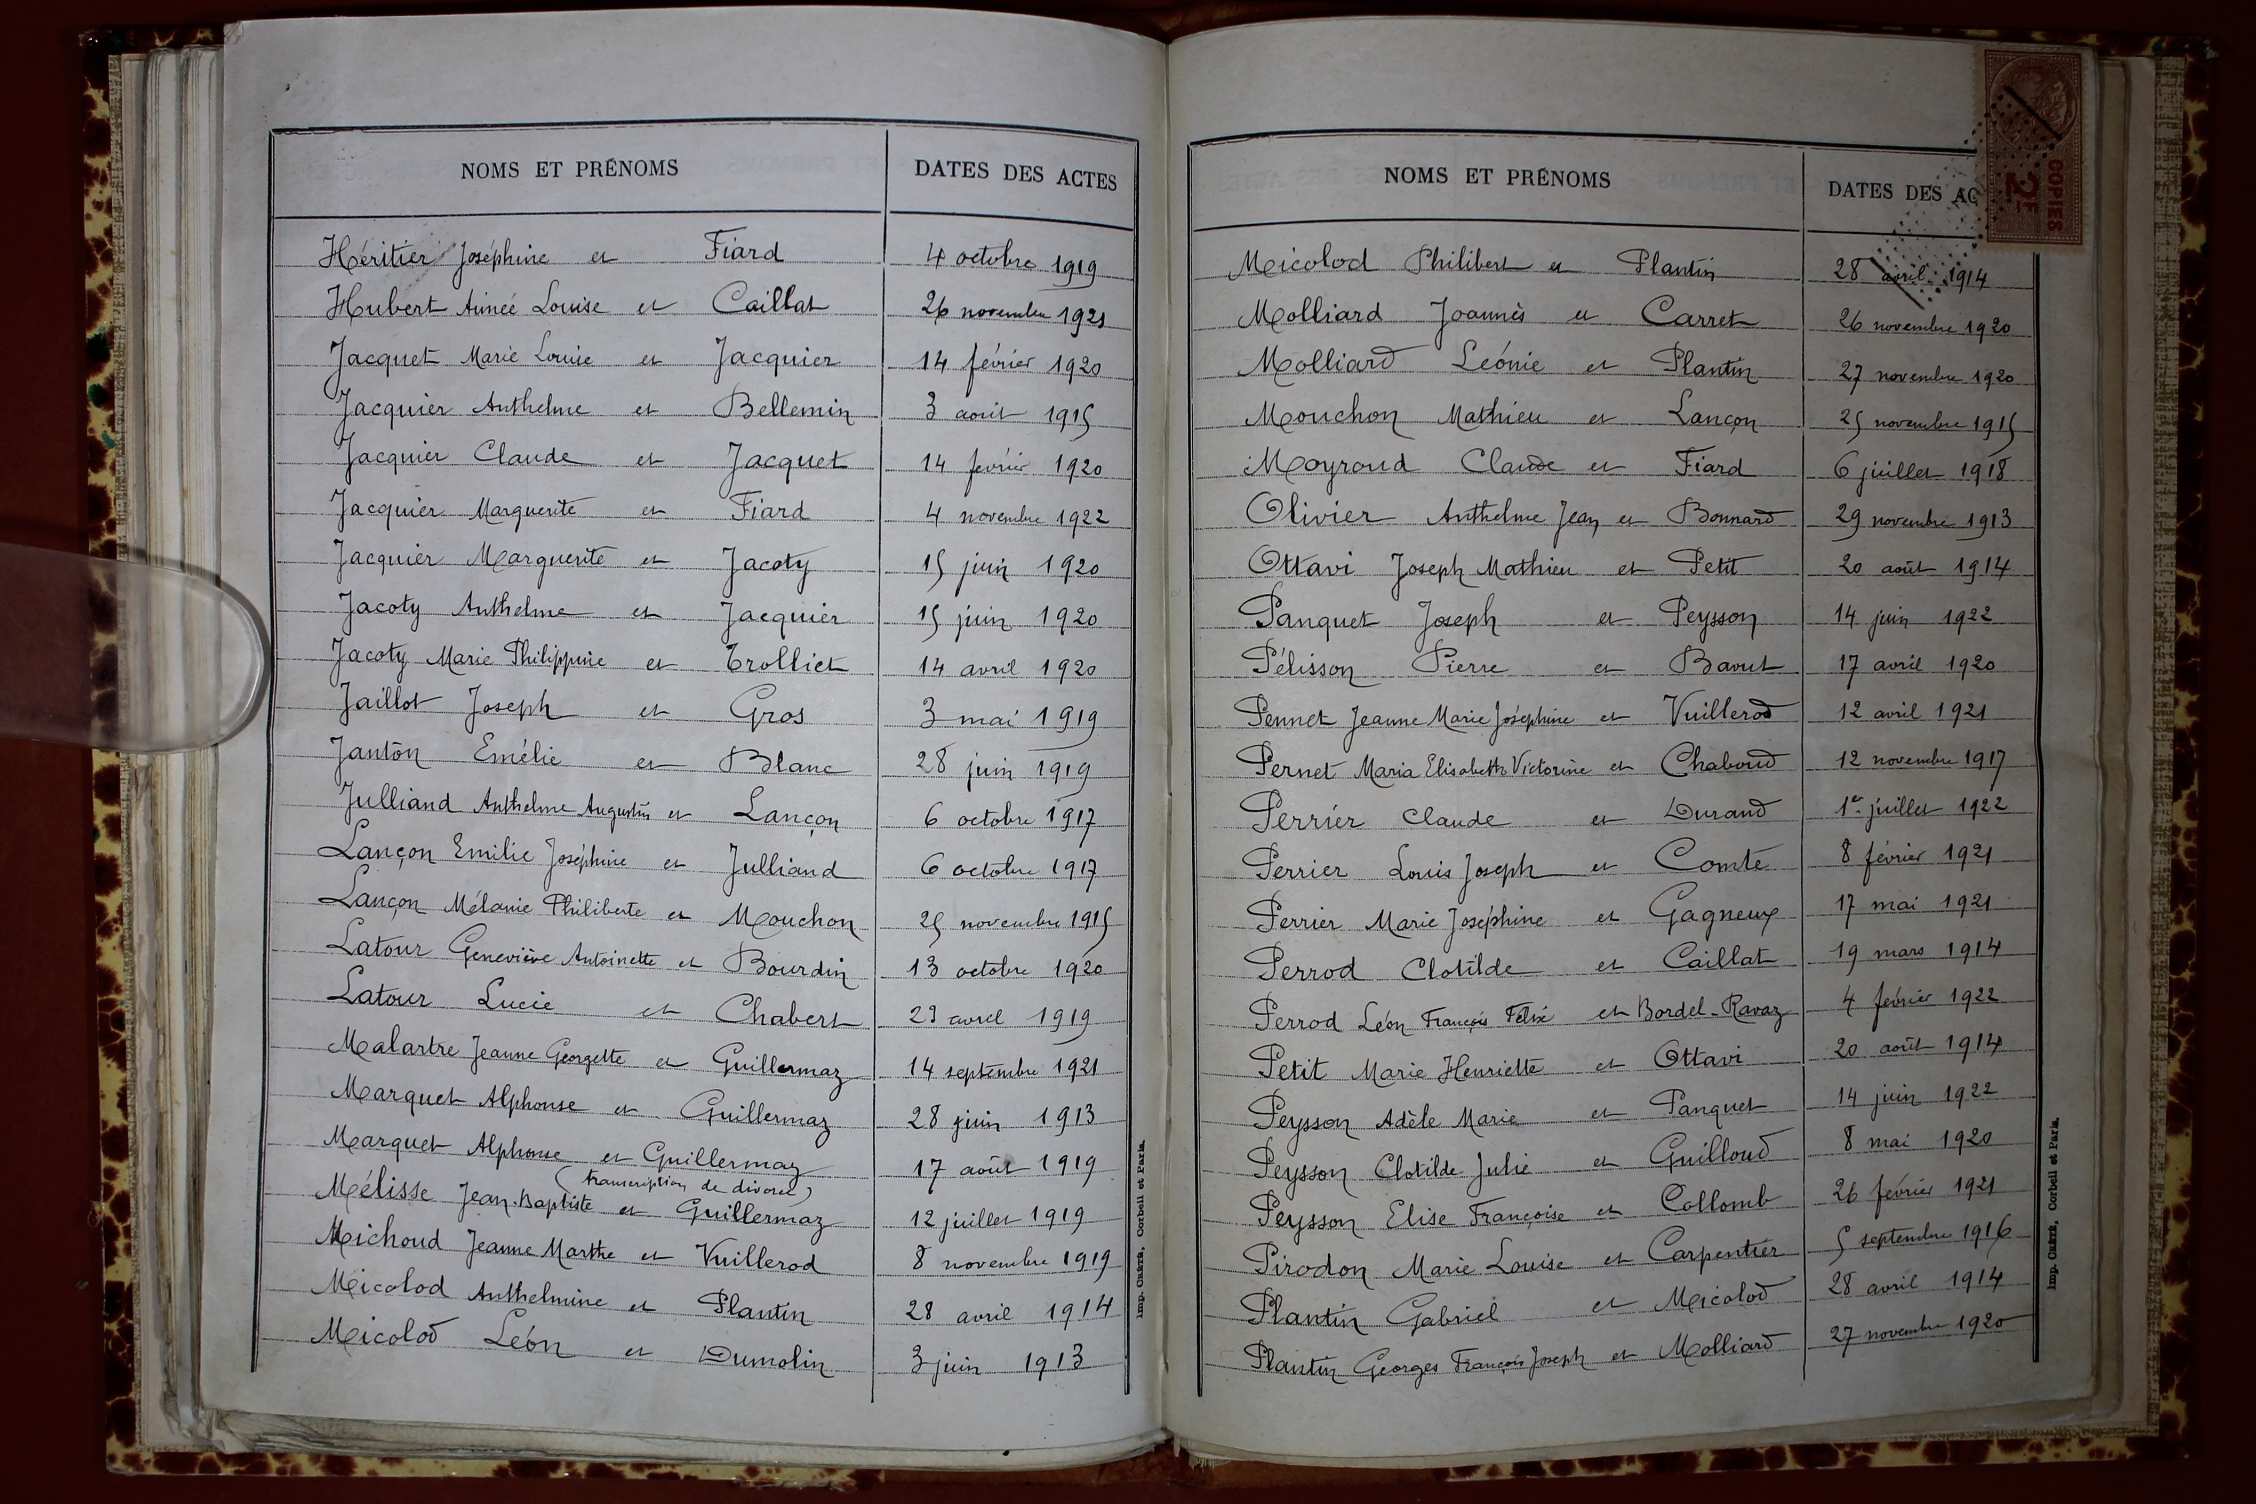 NOMS ET PRÉNOMS DATES DES ACTES
Héritier Joséphine et Fiard 4 octobre 1919
Hubert Aimée Louise et Caillat 26 novembre 1921
Jacquet Marie Louise et Jacquier 14 février 1920
Jacquier Anthelme et Bellemin 3 août 1915
Jacquier Claude et Jacquet 14 février 1920
Jacquier Marguerite et Fiard 4 novembre 1922
Jacquier Marguerite et Jacoty 15 juin 1920
Jacoty Anthelme et Jacquier 15 juin 1920
Jacoty Marie Philippine et Trolliet 14 avril 1920
Jaillot Joseph et Gros 3 mai 1919
Janton Emélie et Blanc 28 juin 1919
Julliand Anthelme Augustin et Lançon 6 octobre 1917
Lançon Emilie Joséphine et Julliand 6 octobre 1917
Lançon Mélanie Philiberte et Mouchon 25 novembre 1915
Latour Geneviève Antoinette et Bourdin 13 octobre 1920
Latour Lucie et Chabert 29 avril 1919
Malartre Jeanne Georgette et Guillermaz 14 septembre 1921
Marquet Alphonse et Guillermaz 28 juin 1913
Marquet Alphonse et Guillermaz 17 août 1919
(transcription de divorce)
Mélisse Jean-Baptiste et Guillermaz 12 juillet 1919
Michoud Jeanne Marthe et Vuillerod 8 novembre 1919
Micolod Anthelmine et Plantin 28 avril 1914
Micolod Léon et Dumolin 3 juin 1913
Imp. Crété, Corbeil et Paris.
NOMS ET PRÉNOMS DATES DES AC
COPIES
2F
Micolod Philibert et Plantin 28 avril 1914
Molliard Joannès et Carret 26 novembre 1920
Molliard Léonie et Plantin 27 novembre 1920
Mouchon Mathieu et Lançon 25 novembre 1915
Moyroud Claude et Fiard 6 juillet 1918
Olivier Anthelme Jean et Bonnard 29 novembre 1913
Ottavi Joseph Mathieu et Petit 20 août 1914
Panquet Joseph et Peysson 14 juin 1922
Pélisson Pierre et Bavut 17 avril 1920
Pennet Jeanne Marie Joséphine et Vuillerod 12 avril 1921
Pernet Maria Elisabeth Victorine et Chaboud 12 novembre 1917
Perrier Claude et Durand 1er juillet 1922
Perrier Louis Joseph et Comte 8 février 1921
Perrier Marie Joséphine et Gagneux 17 mai 1921
Perrod Clotilde et Caillat 19 mars 1914
Perrod Léon François Félix et Bordel-Ravaz 4 février 1922
Petit Marie Henriette et Ottavi 20 août 1914
Peysson Adèle Marie et Panquet 14 juin 1922
Peysson Clotilde Julie et Guilloud 8 mai 1920
Peysson Elise Françoise et Collomb 26 février 1921
Pirodon Marie Louise et Carpentier 5 septembre 1916
Plantin Gabriel et Micolod 28 avril 1914
Plantin Georges François Joseph et Molliard 27 novembre 1920
Imp. Crété, Corbeil et Paris.